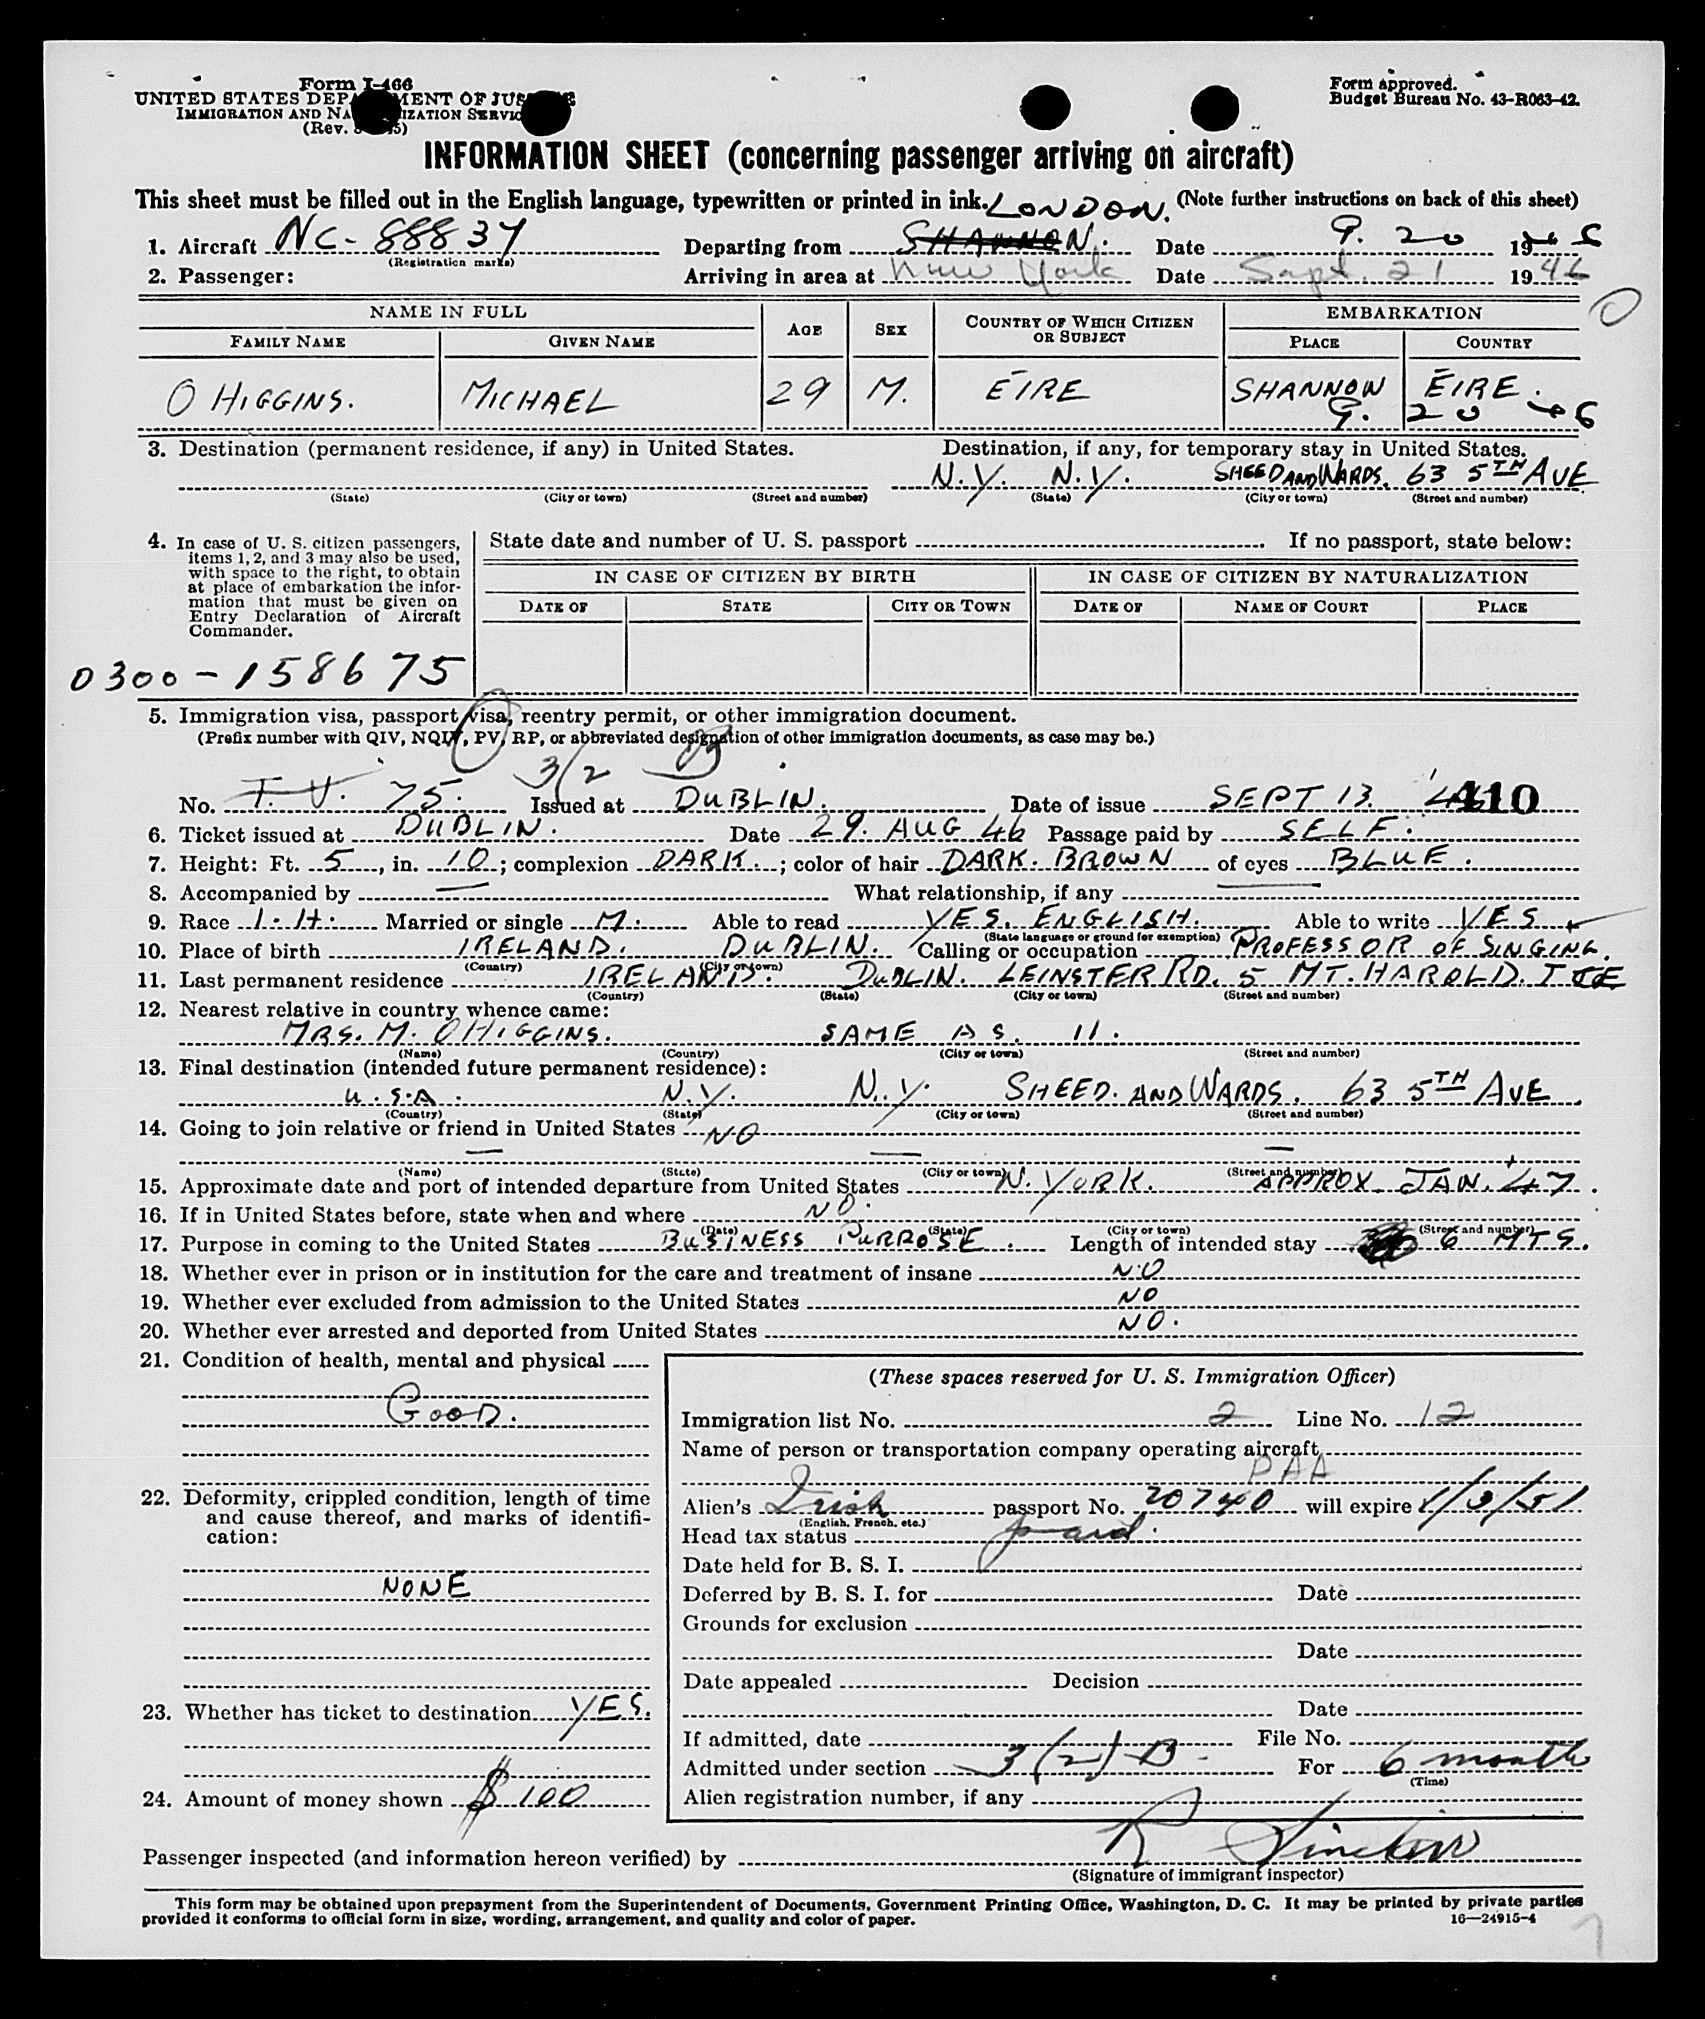 Form I-466
UNITED STATES DEPARTMENT OF JUSTICE
IMMIGRATION AND NATURALIZATION SERVICE
(Rev.
Form approved.
Budget Bureau No. 43-R063-42.
INFORMATION SHEET (concerning passenger arriving on aircraft)
This sheet must be filled out in the English language, typewritten or printed in ink. LONDON. (Note further instructions on back of this sheet)
1. Aircraft NC-88837 Departing from SHANNON. Date 9. 20 1946
(Registration marks)
2. Passenger: Arriving in area at New York Date Sept. 21 1946
NAME IN FULL AGE SEX COUNTRY OF WHICH CITIZEN OR SUBJECT EMBARKATION
FAMILY NAME GIVEN NAME PLACE COUNTRY
O HIGGINS. MICHAEL 29 M. ÉIRE SHANNON ÉIRE.
9. 20 46
3. Destination (permanent residence, if any) in United States. Destination, if any, for temporary stay in United States.
N.Y. N.Y. SHEED AND WARDS. 63 5TH AVE
(State) (City or town) (Street and number) (State) (City or town) (Street and number)
4. In case of U. S. citizen passengers,
items 1, 2, and 3 may also be used,
with space to the right, to obtain
at place of embarkation the infor-
mation that must be given on
Entry Declaration of Aircraft
Commander.
State date and number of U. S. passport If no passport, state below:
IN CASE OF CITIZEN BY BIRTH IN CASE OF CITIZEN BY NATURALIZATION
DATE OF STATE CITY OR TOWN DATE OF NAME OF COURT PLACE
0300-158675
5. Immigration visa, passport visa, reentry permit, or other immigration document.
(Prefix number with QIV, NQIV, PV, RP, or abbreviated designation of other immigration documents, as case may be.)
3/2 B
No. T. V. 75. Issued at DUBLIN. Date of issue SEPT 13. '46 410
6. Ticket issued at DUBLIN. Date 29. AUG 46 Passage paid by SELF.
7. Height: Ft. 5, in. 10; complexion DARK.; color of hair DARK. BROWN of eyes BLUE.
8. Accompanied by — What relationship, if any —
9. Race I.H. Married or single M. Able to read YES. ENGLISH. Able to write YES
(State language or ground for exemption)
10. Place of birth IRELAND. DUBLIN. Calling or occupation PROFESSOR OF SINGING.
(Country) (City or town)
11. Last permanent residence IRELAND. DUBLIN. LEINSTER RD. 5 MT. HAROLD. TCE
(Country) (State) (City or town) (Street and number)
12. Nearest relative in country whence came:
MRS. M. O HIGGINS. SAME AS. 11.
(Name) (Country) (City or town) (Street and number)
13. Final destination (intended future permanent residence):
U.S.A. N.Y. N.Y. SHEED. AND WARDS. 63 5TH AVE.
(Country) (State) (City or town) (Street and number)
14. Going to join relative or friend in United States NO
— — —
(Name) (State) (City or town) (Street and number)
15. Approximate date and port of intended departure from United States N. YORK. APPROX. JAN. 47.
16. If in United States before, state when and where NO.
(Date) (State) (City or town) (Street and number)
17. Purpose in coming to the United States BUSINESS PURPOSE. Length of intended stay 6 MTS.
18. Whether ever in prison or in institution for the care and treatment of insane NO
19. Whether ever excluded from admission to the United States NO
20. Whether ever arrested and deported from United States NO.
21. Condition of health, mental and physical
GOOD.
22. Deformity, crippled condition, length of time
and cause thereof, and marks of identifi-
cation:
NONE
23. Whether has ticket to destination YES.
24. Amount of money shown $100
(These spaces reserved for U. S. Immigration Officer)
Immigration list No. 2 Line No. 12
Name of person or transportation company operating aircraft
PAA
Alien's Irish passport No. 20740 will expire 1/3/51
(English, French, etc.)
Head tax status paid.
Date held for B. S. I.
Deferred by B. S. I. for Date
Grounds for exclusion
Date
Date appealed Decision
Date
If admitted, date File No.
Admitted under section 3(2)B- For 6 month
(Time)
Alien registration number, if any
Passenger inspected (and information hereon verified) by R Sinclair
(Signature of immigrant inspector)
This form may be obtained upon prepayment from the Superintendent of Documents, Government Printing Office, Washington, D. C. It may be printed by private parties
provided it conforms to official form in size, wording, arrangement, and quality and color of paper. 16—24915-4